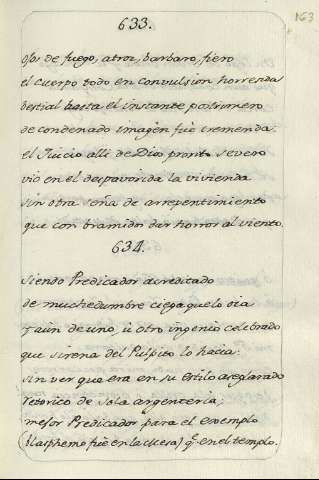 163
633.
ojos de fuego, atroz, barbaro, fiero
el cuerpo todo en convulsion horrenda
bestial hasta el instante postrimero
de condenado imagen fuè tremenda:
el Juicio alli de Dios pronto severo
viò en el despavorida la vivienda
sin otra seña de arrepentimiento
que con bramidos dar horror al viento.
634.
Siendo Predicador acreditado
de muchedumbre ciega que lo oia
y aùn de uno, ù otro ingenio celebrado
que sirena del Pulpito lo hacia:
sin ver que era en su estilo aseglarado
retorico de sola argenteria,
mejor Predicador para el exemplo
(blasphemo fuè en la Mesa) q.e en el templo.